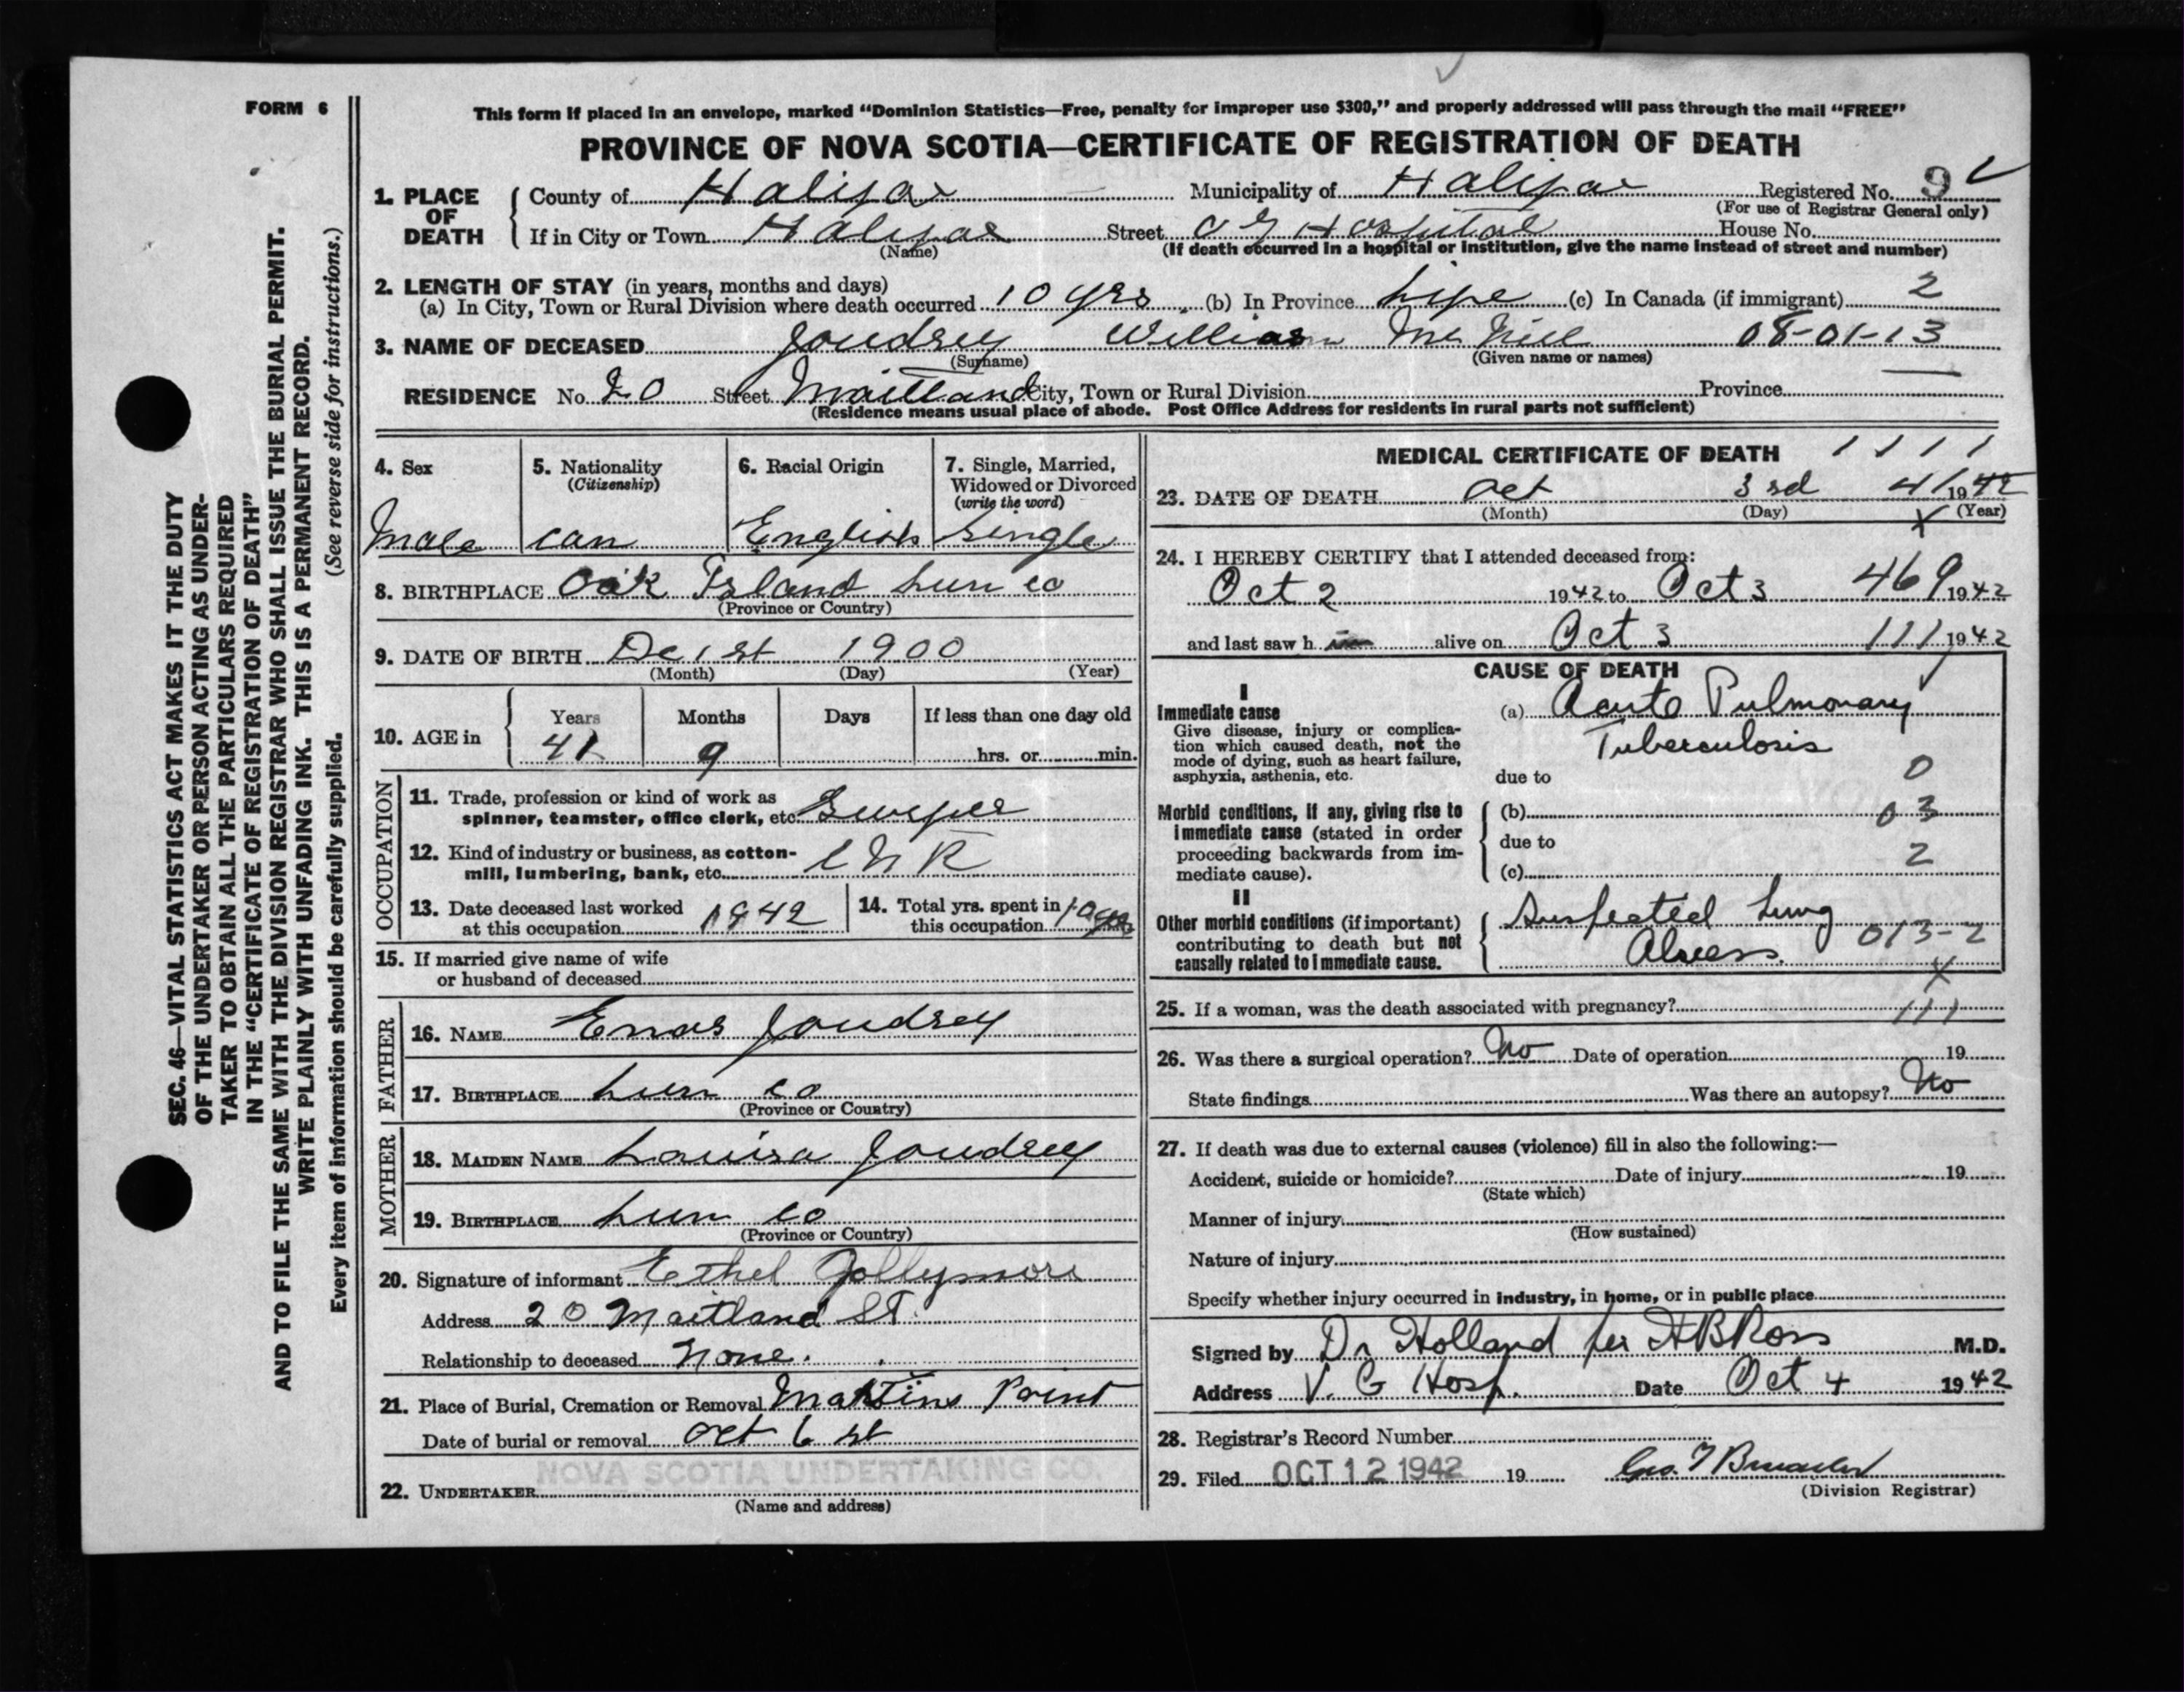 FORM 6
This form if placed in an envelope, marked “Dominion Statistics—Free, penalty for improper use $300,” and properly addressed will pass through the mail “FREE”
PROVINCE OF NOVA SCOTIA—CERTIFICATE OF REGISTRATION OF DEATH
1. PLACE OF DEATH
County of Halifax Municipality of Halifax Registered No. 9
(For use of Registrar General only)
If in City or Town Halifax Street G Hospital House No.
(Name) (If death occurred in a hospital or institution, give the name instead of street and number)
2. LENGTH OF STAY (in years, months and days)
(a) In City, Town or Rural Division where death occurred 10 yrs (b) In Province Life (c) In Canada (if immigrant) 2
3. NAME OF DECEASED Joudrey William 08-01-13
(Surname) (Given name or names)
RESIDENCE No. 20 Street Maitland City, Town or Rural Division Province
(Residence means usual place of abode. Post Office Address for residents in rural parts not sufficient)
4. Sex
Male
5. Nationality
(Citizenship)
Can
6. Racial Origin
English
7. Single, Married, Widowed or Divorced
(write the word)
Single
8. BIRTHPLACE Oak Island Lun co
(Province or Country)
9. DATE OF BIRTH De 1st 1900
(Month) (Day) (Year)
10. AGE in Years Months Days If less than one day old
41 9 hrs. or min.
OCCUPATION
11. Trade, profession or kind of work as
spinner, teamster, office clerk, etc.
12. Kind of industry or business, as cotton-
mill, lumbering, bank, etc. C N R
13. Date deceased last worked
at this occupation 1942
14. Total yrs. spent in
this occupation
15. If married give name of wife
or husband of deceased
FATHER
16. NAME Enos Joudrey
17. BIRTHPLACE Lun co
(Province or Country)
MOTHER
18. MAIDEN NAME Louisa Joudrey
19. BIRTHPLACE Lun co
(Province or Country)
20. Signature of informant Ethel Jollymore
Address 20 Maitland St.
Relationship to deceased None.
21. Place of Burial, Cremation or Removal Martins Point
Date of burial or removal Oct 6 st
NOVA SCOTIA UNDERTAKING CO.
22. UNDERTAKER
(Name and address)
MEDICAL CERTIFICATE OF DEATH 1 1 1 1
23. DATE OF DEATH Oct 3rd 41 1942
(Month) (Day) (Year)
X
24. I HEREBY CERTIFY that I attended deceased from:
Oct 2 1942 to Oct 3 469 1942
and last saw h alive on Oct 3 111 1942
CAUSE OF DEATH
I
Immediate cause
Give disease, injury or complica-
tion which caused death, not the
mode of dying, such as heart failure,
asphyxia, asthenia, etc.
(a) Acute Pulmonary
Tuberculosis
due to 0
Morbid conditions, if any, giving rise to
immediate cause (stated in order
proceeding backwards from im-
mediate cause).
(b) 03
due to
2
(c)
II
Other morbid conditions (if important)
contributing to death but not
causally related to immediate cause.
Suspected Lung
Abcess. 013-2
X
25. If a woman, was the death associated with pregnancy? 111
26. Was there a surgical operation? No Date of operation 19
State findings Was there an autopsy? No
27. If death was due to external causes (violence) fill in also the following:—
Accident, suicide or homicide? Date of injury 19
(State which)
Manner of injury
(How sustained)
Nature of injury
Specify whether injury occurred in industry, in home, or in public place
Signed by Dr Holland per H B Ross M.D.
Address V. G Hosp. Date Oct 4 1942
28. Registrar's Record Number
29. Filed OCT 12 1942 19
(Division Registrar)
SEC. 46—VITAL STATISTICS ACT MAKES IT THE DUTY
OF THE UNDERTAKER OR PERSON ACTING AS UNDER-
TAKER TO OBTAIN ALL THE PARTICULARS REQUIRED
IN THE “CERTIFICATE OF REGISTRATION OF DEATH”
AND TO FILE THE SAME WITH THE DIVISION REGISTRAR WHO SHALL ISSUE THE BURIAL PERMIT.
WRITE PLAINLY WITH UNFADING INK. THIS IS A PERMANENT RECORD.
Every item of information should be carefully supplied. (See reverse side for instructions.)